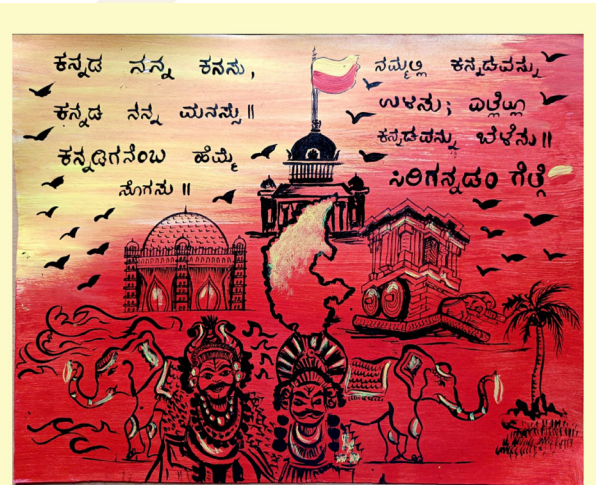 ಕನ್ನಡ ನನ್ನ ಕನಸು,
ಕನ್ನಡ ನನ್ನ ಮನಸ್ಸು ॥
ಕನ್ನಡಿಗನೆಂಬ ಹೆಮ್ಮೆ
ಸೊಗಸು ॥
ನಮ್ಮಲ್ಲಿ ಕನ್ನಡವನ್ನು
ಉಳಿಸು; ಎಲ್ಲೆಲ್ಲೂ
ಕನ್ನಡವನ್ನು ಬೆಳೆಸು ॥
ಸಿರಿಗನ್ನಡಂ ಗೆಲ್ಗೆ